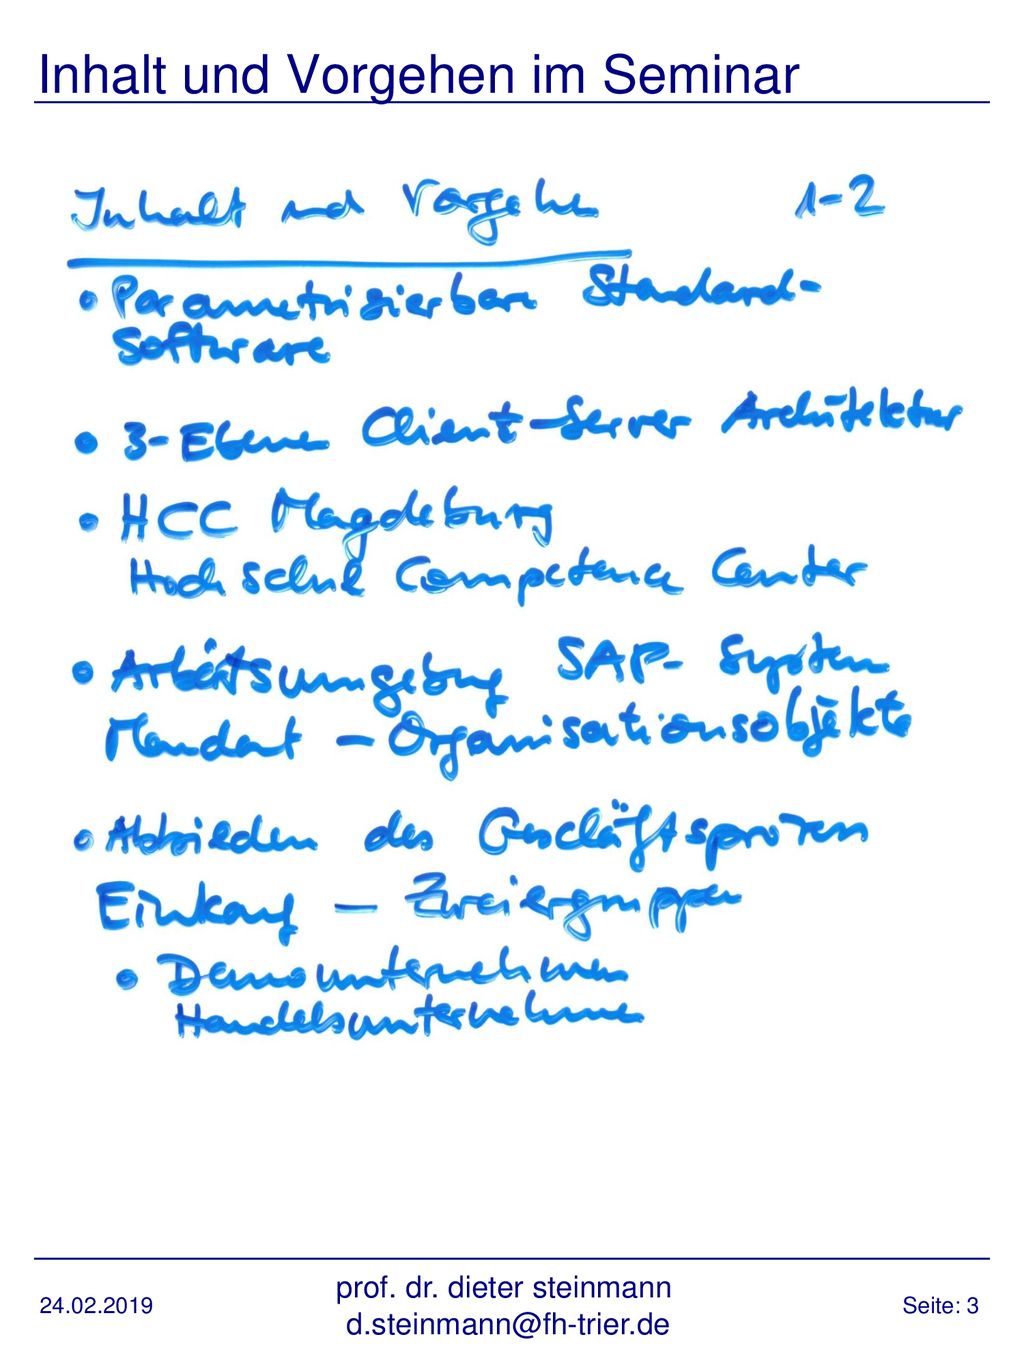 Inhalt und Vorgehen im Seminar
Inhalt und Vorgehen 1-2
• Parametrisierbare Standard-
Software
• 3-Ebenen Client-Server Architektur
• HCC Magdeburg
Hochschul Competence Center
• Arbeitsumgebung SAP-System
Mandant - Organisationsobjekte
• Abbilden des Geschäftsprozess
Einkauf - Zweiergruppen
• Demounternehmen
Handelsunternehmen
prof. dr. dieter steinmann
24.02.2019 Seite: 3
d.steinmann@fh-trier.de